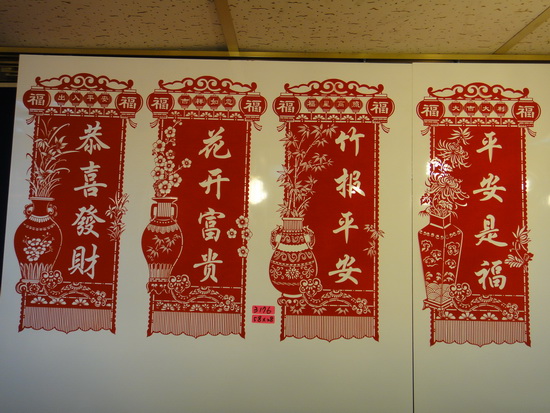 福 出入平安 福
恭喜發財
福 吉祥如意 福
花开富贵
福 福星高照 福
竹报平安
福 大吉大利 福
平安是福